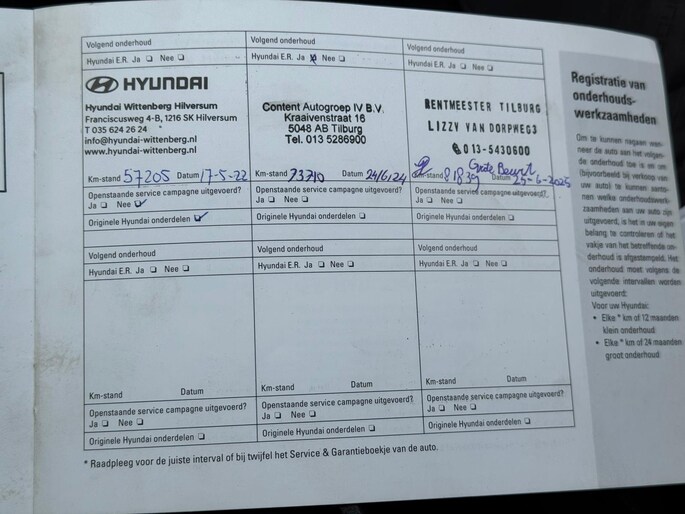 Volgend onderhoud
Hyundai E.R. Ja Nee
HYUNDAI
Hyundai Wittenberg Hilversum
Franciscusweg 4-B, 1216 SK Hilversum
T 035 624 26 24
info@hyundai-wittenberg.nl
www.hyundai-wittenberg.nl
Km-stand 57205 Datum 17-5-22
Openstaande service campagne uitgevoerd?
Ja Nee
Originele Hyundai onderdelen
Volgend onderhoud
Hyundai E.R. Ja Nee
Content Autogroep IV B.V.
Kraaivenstraat 16
5048 AB Tilburg
Tel. 013 5286900
Km-stand 73710 Datum 24/6/24
Openstaande service campagne uitgevoerd?
Ja Nee
Originele Hyundai onderdelen
Volgend onderhoud
Hyundai E.R. Ja Nee
RENTMEESTER TILBURG
LIZZY VAN DORPWEG3
013-5430600
Grote Beurt
Km-stand 81839 Datum 25-6-2025
Openstaande service campagne uitgevoerd?
Ja Nee
Originele Hyundai onderdelen
Volgend onderhoud
Hyundai E.R. Ja Nee
Km-stand Datum
Openstaande service campagne uitgevoerd?
Ja Nee
Originele Hyundai onderdelen
Volgend onderhoud
Hyundai E.R. Ja Nee
Km-stand Datum
Openstaande service campagne uitgevoerd?
Ja Nee
Originele Hyundai onderdelen
Volgend onderhoud
Hyundai E.R. Ja Nee
Km-stand Datum
Openstaande service campagne uitgevoerd?
Ja Nee
Originele Hyundai onderdelen
* Raadpleeg voor de juiste interval of bij twijfel het Service & Garantieboekje van de auto.
Registratie van
onderhouds-
werkzaamheden
Om te kunnen nagaan wan-
neer de auto aan het volgen-
de onderhoud toe is en om
(bijvoorbeeld bij verkoop van
uw auto) te kunnen aanto-
nen welke onderhoudswerk-
zaamheden aan uw auto zijn
uitgevoerd, is het in uw eigen
belang te controleren of het
vakje van het betreffende on-
derhoud is afgestempeld. Het
onderhoud moet volgens de
volgende intervallen worden
uitgevoerd:
Voor uw Hyundai:
• Elke * km of 12 maanden
klein onderhoud
• Elke * km of 24 maanden
groot onderhoud